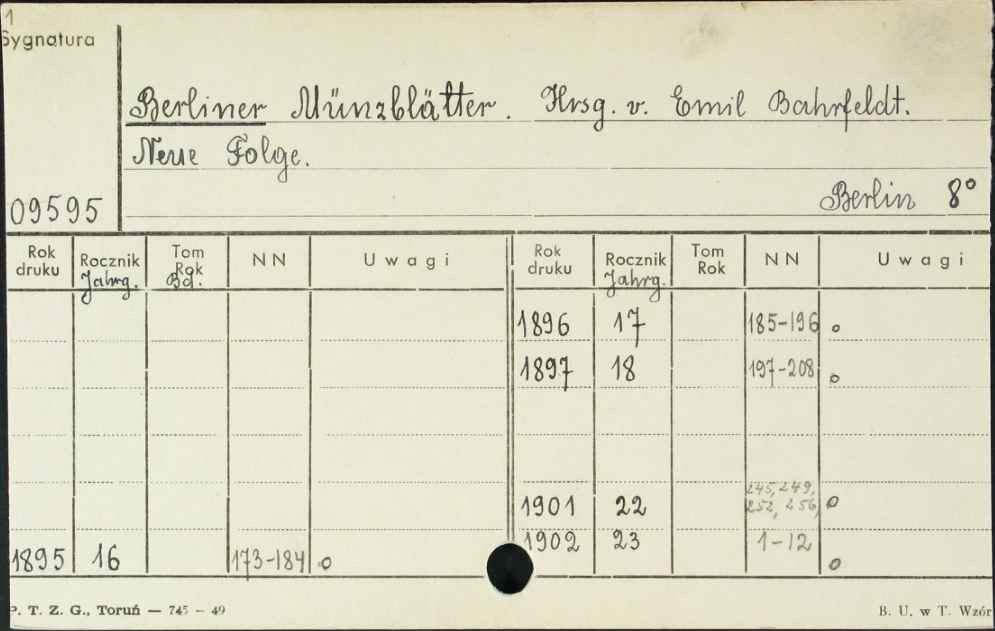 1
Sygnatura
Berliner Münzblätter. Hrsg. v. Emil Bahrfeldt.
Neue Folge.
09595
Berlin 8°
Rok druku Rocznik Jahrg. Tom Rok Bd. NN Uwagi Rok druku Rocznik Jahrg. Tom Rok NN Uwagi
1896 17 185-196 o
1897 18 197-208 o
1901 22 245, 249, 252, 256, o
1902 23 1-12 o
1895 16 173-184 o
P. T. Z. G., Toruń — 745 - 49
B. U. w T. Wzór